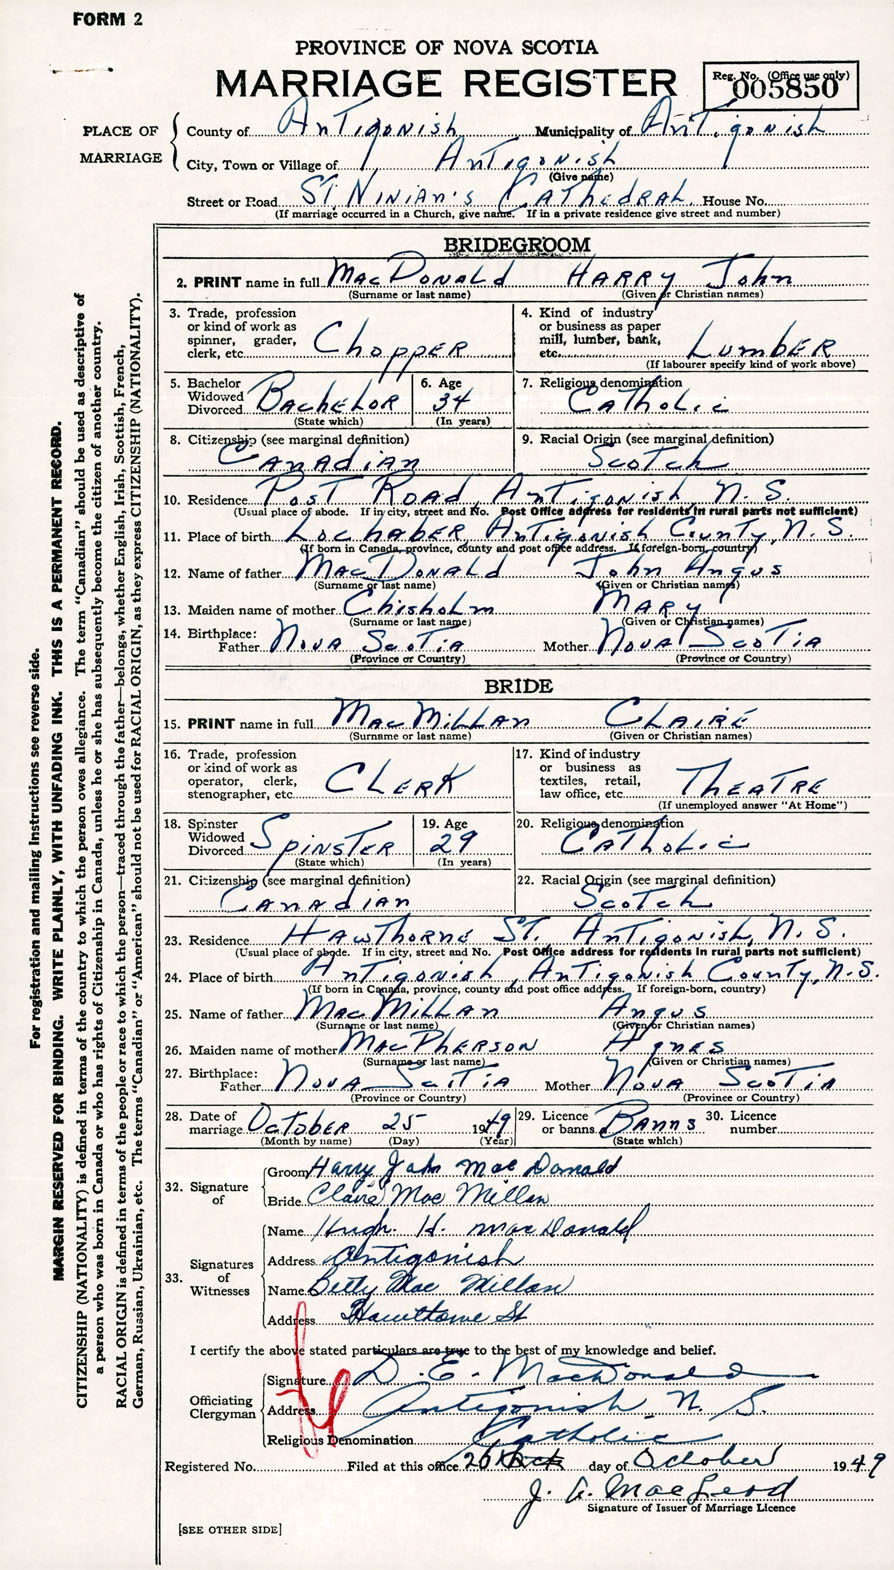 FORM 2
PROVINCE OF NOVA SCOTIA
MARRIAGE REGISTER
Reg. No. (Office use only)
005850
PLACE OF MARRIAGE
County of Antigonish Municipality of Antigonish
City, Town or Village of Antigonish
(Give name)
Street or Road St. Ninian's Cathedral House No.
(If marriage occurred in a Church, give name. If in a private residence give street and number)
BRIDEGROOM
2. PRINT name in full MacDonald Harry John
(Surname or last name) (Given or Christian names)
3. Trade, profession or kind of work as spinner, grader, clerk, etc. Chopper
4. Kind of industry or business as paper mill, lumber, bank, etc. Lumber
(If labourer specify kind of work above)
5. Bachelor Widowed Divorced Bachelor
(State which)
6. Age 34
(In years)
7. Religious denomination Catholic
8. Citizenship (see marginal definition) Canadian
9. Racial Origin (see marginal definition) Scotch
10. Residence Post Road, Antigonish, N. S.
(Usual place of abode. If in city, street and No. Post Office address for residents in rural parts not sufficient)
11. Place of birth Lochaber, Antigonish County, N. S.
(If born in Canada, province, county and post office address. If foreign-born, country)
12. Name of father MacDonald John Angus
(Surname or last name) (Given or Christian names)
13. Maiden name of mother Chisholm Mary
(Surname or last name) (Given or Christian names)
14. Birthplace: Father Nova Scotia Mother Nova Scotia
(Province or Country) (Province or Country)
BRIDE
15. PRINT name in full MacMillan Claire
(Surname or last name) (Given or Christian names)
16. Trade, profession or kind of work as operator, clerk, stenographer, etc. Clerk
17. Kind of industry or business as textiles, retail, law office, etc. Theatre
(If unemployed answer "At Home")
18. Spinster Widowed Divorced Spinster
(State which)
19. Age 29
(In years)
20. Religious denomination Catholic
21. Citizenship (see marginal definition) Canadian
22. Racial Origin (see marginal definition) Scotch
23. Residence Hawthorne St. Antigonish, N. S.
(Usual place of abode. If in city, street and No. Post Office address for residents in rural parts not sufficient)
24. Place of birth Antigonish, Antigonish County, N. S.
(If born in Canada, province, county and post office address. If foreign-born, country)
25. Name of father MacMillan Angus
(Surname or last name) (Given or Christian names)
26. Maiden name of mother MacPherson Agnes
(Surname or last name) (Given or Christian names)
27. Birthplace: Father Nova Scitia Mother Nova Scotia
(Province or Country) (Province or Country)
28. Date of marriage October 25 1949
(Month by name) (Day) (Year)
29. Licence or banns Banns
(State which)
30. Licence number
32. Signature of
Groom Harry John MacDonald
Bride Claire MacMillan
33. Signatures of Witnesses
Name Hugh. H. MacDonald
Address Antigonish
Name Betty MacMillan
Address Hawthorne St
I certify the above stated particulars are true to the best of my knowledge and belief.
Officiating Clergyman
Signature D. E. MacDonald
Address Antigonish N. S.
Religious Denomination Catholic
Registered No. Filed at this office 26 day of October 1949
J. A. MacLeod
Signature of Issuer of Marriage Licence
[SEE OTHER SIDE]
For registration and mailing instructions see reverse side.
MARGIN RESERVED FOR BINDING. WRITE PLAINLY, WITH UNFADING INK. THIS IS A PERMANENT RECORD.
CITIZENSHIP (NATIONALITY) is defined in terms of the country to which the person owes allegiance. The term "Canadian" should be used as descriptive of
a person who was born in Canada or who has rights of Citizenship in Canada, unless he or she has subsequently become the citizen of another country.
RACIAL ORIGIN is defined in terms of the people or race to which the person—traced through the father—belongs, whether English, Irish, Scottish, French,
German, Russian, Ukrainian, etc. The terms "Canadian" or "American" should not be used for RACIAL ORIGIN, as they express CITIZENSHIP (NATIONALITY).